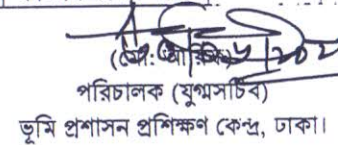 (মোঃ
পরিচালক (যুগ্মসচিব)
ভূমি প্রশাসন প্রশিক্ষণ কেন্দ্র, ঢাকা।